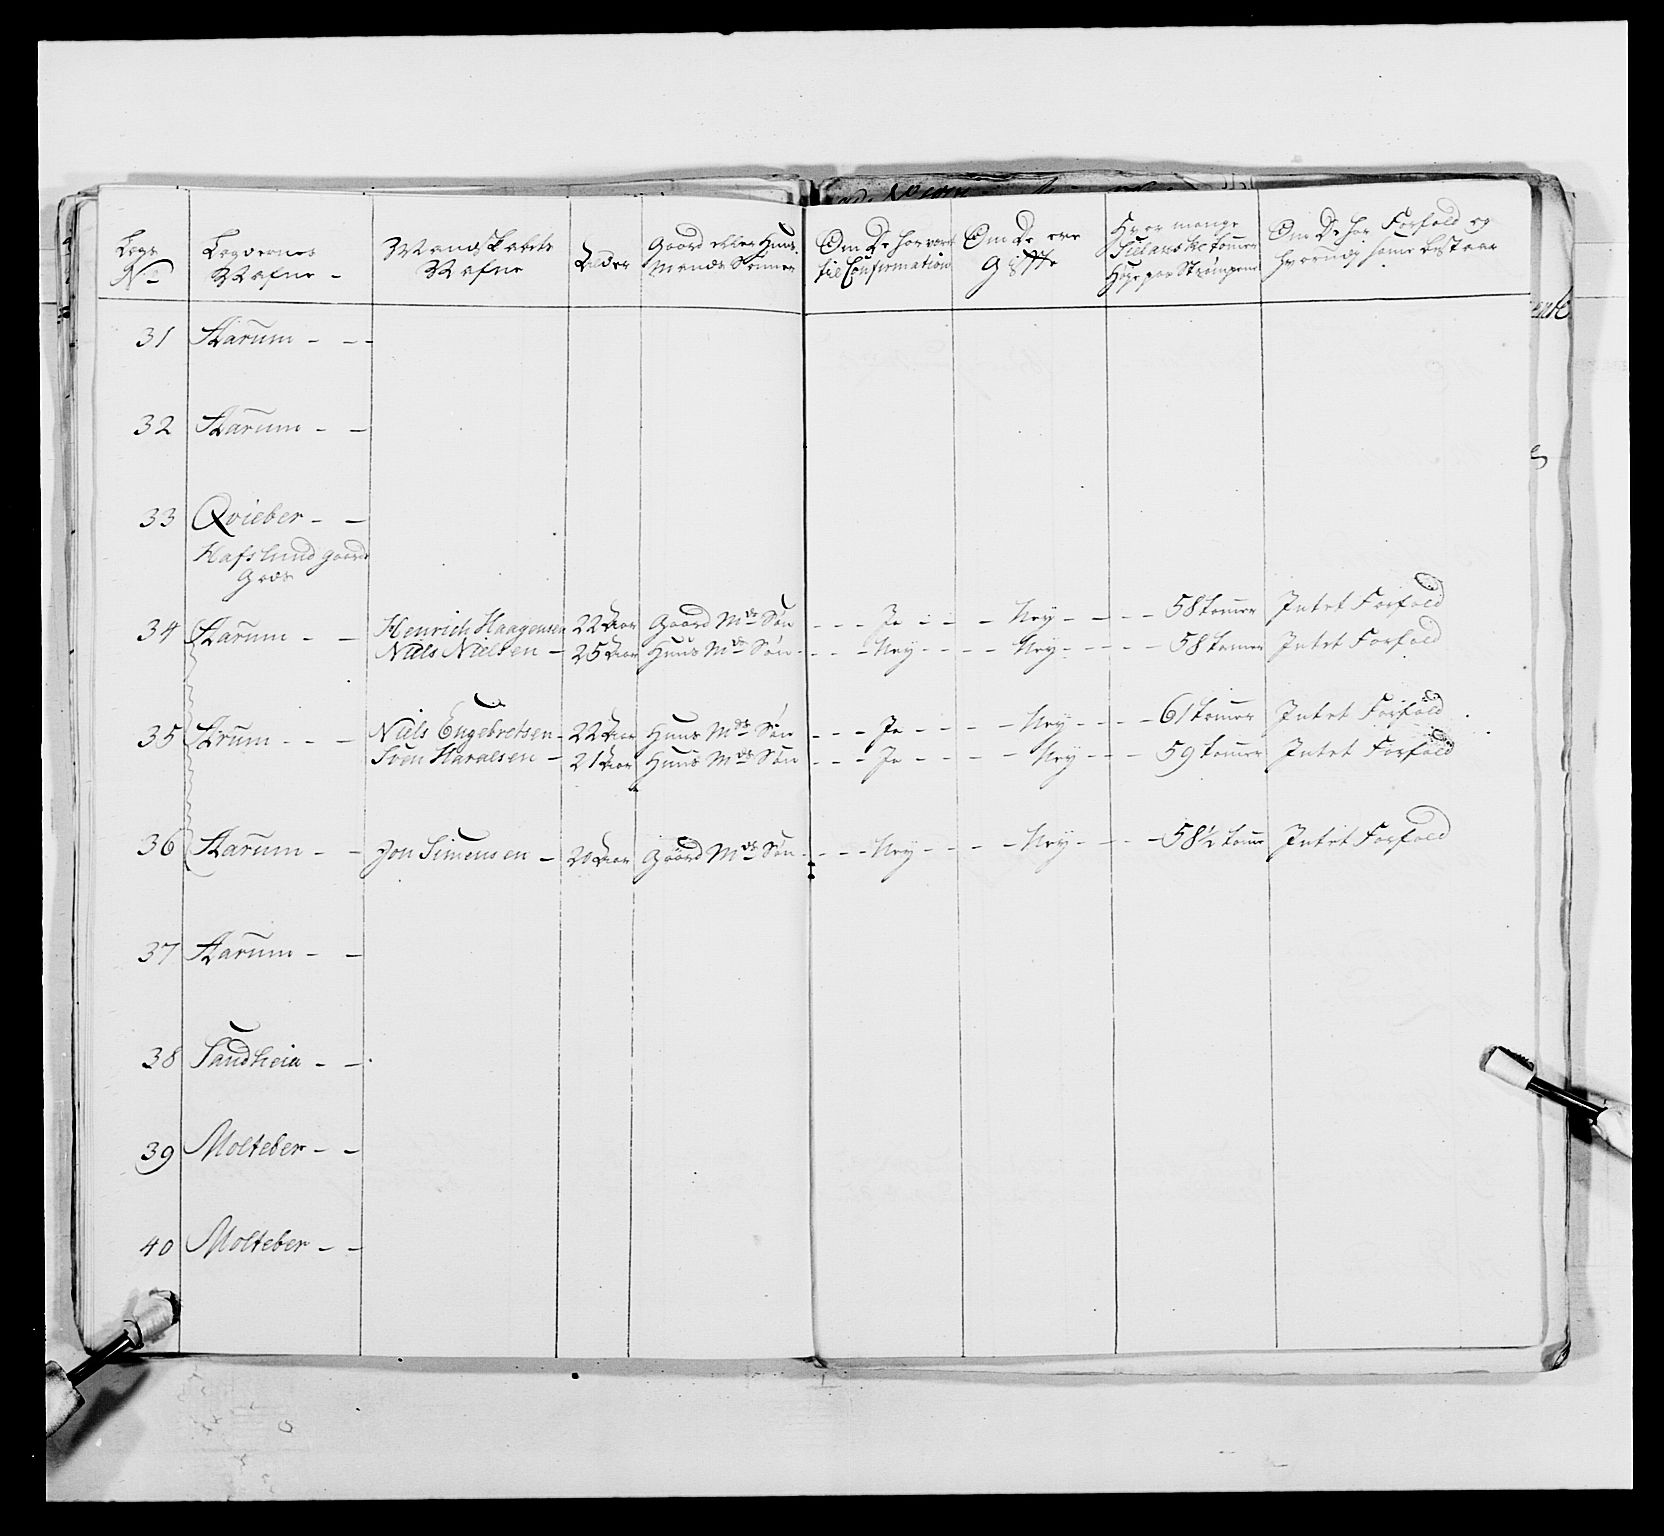 Legs No
Legdernes Nafne -
Mandskabets Nafne
Alder
Gaard eller Huus Mands Sønner
Om De har vært til Confirmation
Om De ere Gifte
Hvor mange Sielanske tommer Høye paa Strømpene
Om De har Forfald og hvorudj same bestaar
31 Aarum - - -
32 Aarum - -
33 Qvieber - -
Hafslund gaards
Gods
34 Aarum - - Henrich Haagensen 22 Aar Gaard Mds Søn - - - Ja - - - Ney - - - - 58 tommer Intet Forfald
Niels Nielsen - 25 Aar Huus Mds Søn - - - Ney - - - - Ney - - - - - 58 tomer Intet Forfald
35 Arum - - - Niels Engebretsen - 22 Aar Huus Mds Søn - - - Ja - - - - Ney - - - - 61 tommer Intet Forfald
Sven Haralsen - 21 Aar Huus Mds Søn - - - Ja - - - - Ney - - - 59 tommer Intet Forfald
36 Aarum - - Jon Simensen - 20 Aar Gaard Mds Søn - - - - Ney - - - - Ney - - - - 58 1/2 tome Intet Forfald
37 Aarum - -
38 Sandheia - -
39 Molteber - -
40 Molteber - -